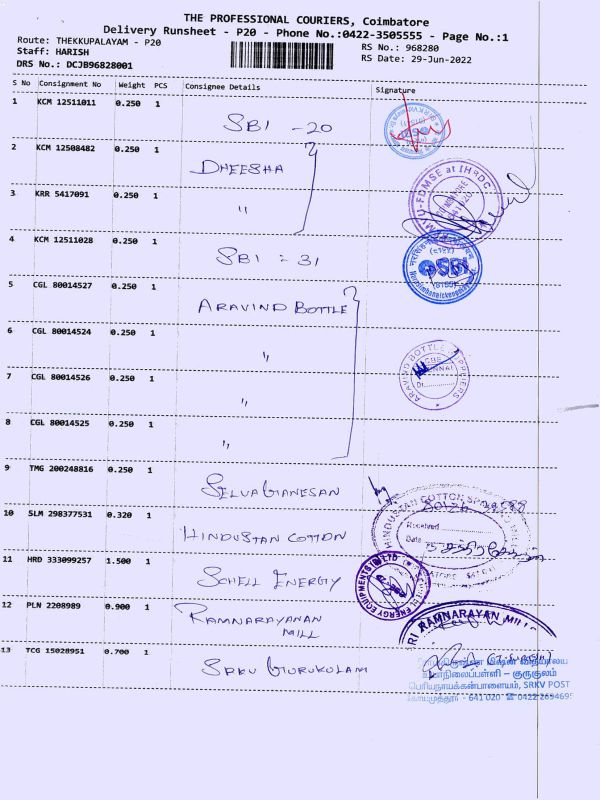 THE PROFESSIONAL COURIERS, Coimbatore
Delivery Runsheet - P20 - Phone No.:0422-3505555 - Page No.:1
Route: THEKKUPALAYAM - P20
RS No.: 968280
Staff: HARISH
RS Date: 29-Jun-2022
DRS No.: DCJB96828001
S No Consignment No Weight PCS Consignee Details Signature
1 KCM 12511011 0.250 1
SBI - 20
2 KCM 12508482 0.250 1
DHEESHA
MYU-FDMSE at IHGDC
3 KRR 5417091 0.250 1
"
4 KCM 12511028 0.250 1
SBI = 31
SBI
5 CGL 80014527 0.250 1
ARAVIND BOTTLE
6 CGL 80014524 0.250 1
"
ARAVIND BOTTLE
7 CGL 80014526 0.250 1
"
8 CGL 80014525 0.250 1
"
9 TMG 200248816 0.250 1
SELVAGANESAN
10 SLM 298377531 0.320 1
HINDUSTAN COTTON
HINDUSTAN COTTON
Received
Date
11 HRD 333099257 1.500 1
SCHELL ENERGY
ENERGY EQUIPMENTS
12 PLN 2208989 0.900 1
RAMNARAYANAN
MILL
RI RAMNARAYAN MILL
13 TCG 15028951 0.700 1
SRKV GURUKULAM
குருகுலம்
பெரியநாயக்கன்பாளையம், SRKV POST
641 020 ☎ 0422 2694695